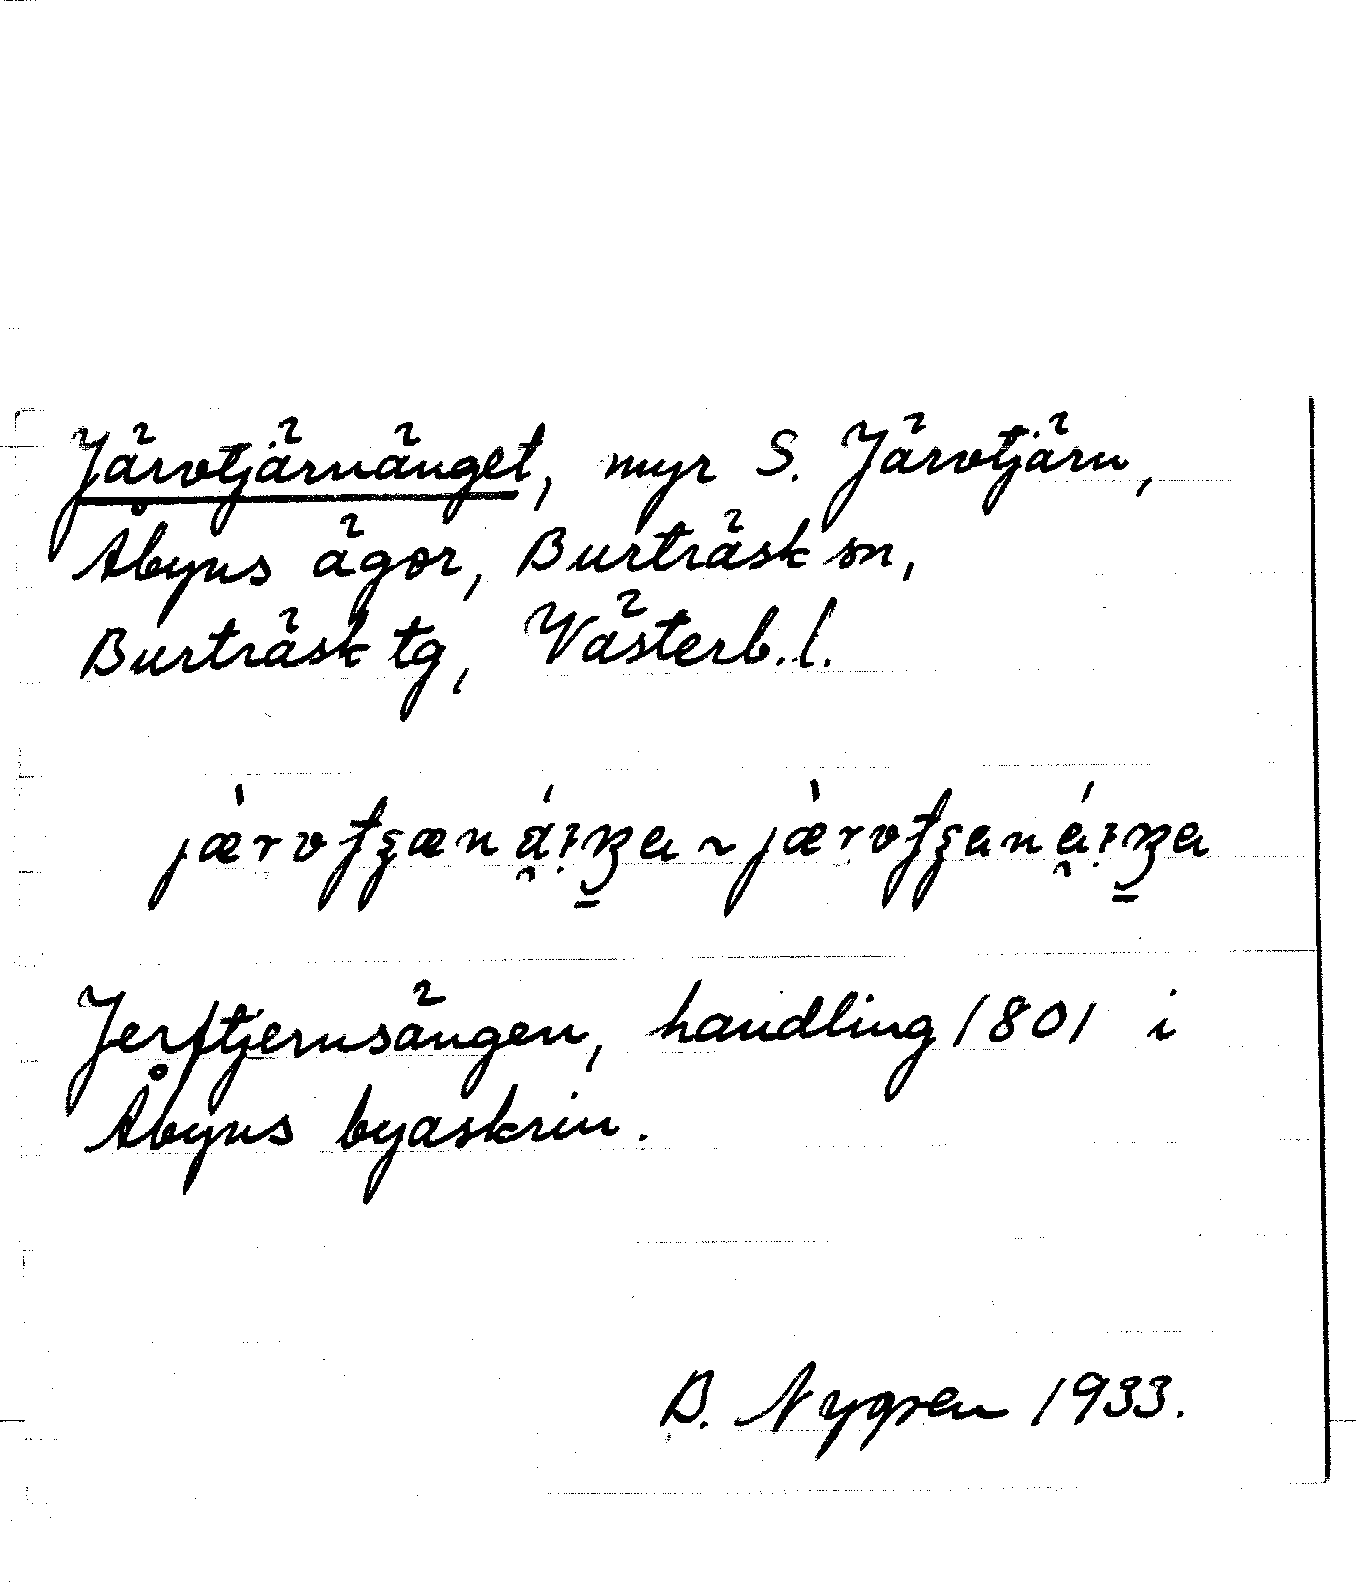 Järvtjärnänget, myr S. Järvtjärn,
Åbyns ägor, Burträsk sn,
Burträsk tg, Västerb. l.
Jerftjernsängen, handling 1801 i
Åbyns byaskrin.
B. Nygren 1933.